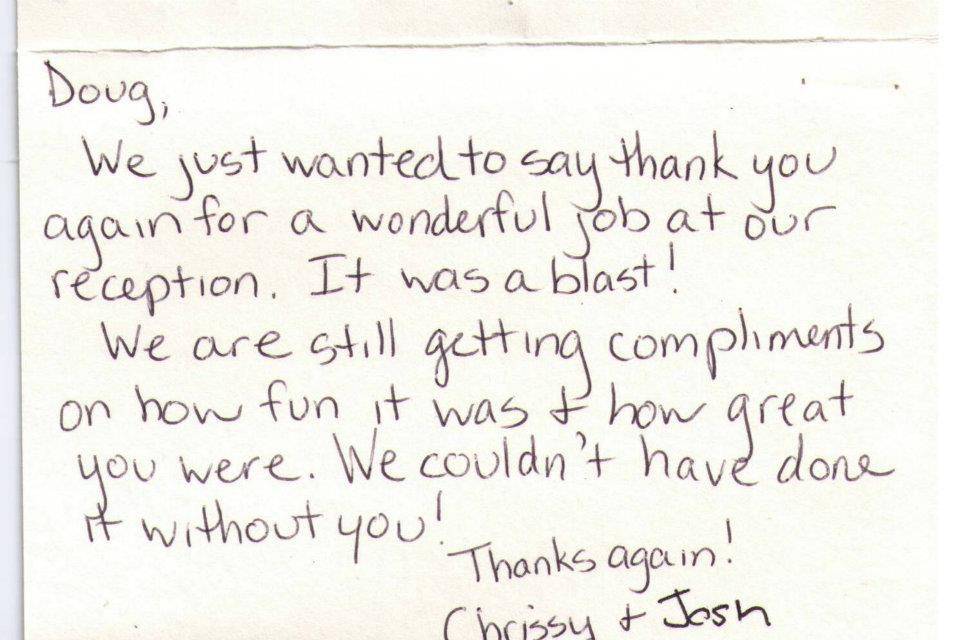 Doug,
We just wanted to say thank you
again for a wonderful job at our
reception. It was a blast!
We are still getting compliments
on how fun it was & how great
you were. We couldn't have done
it without you!
Thanks again!
Chrissy + Josh